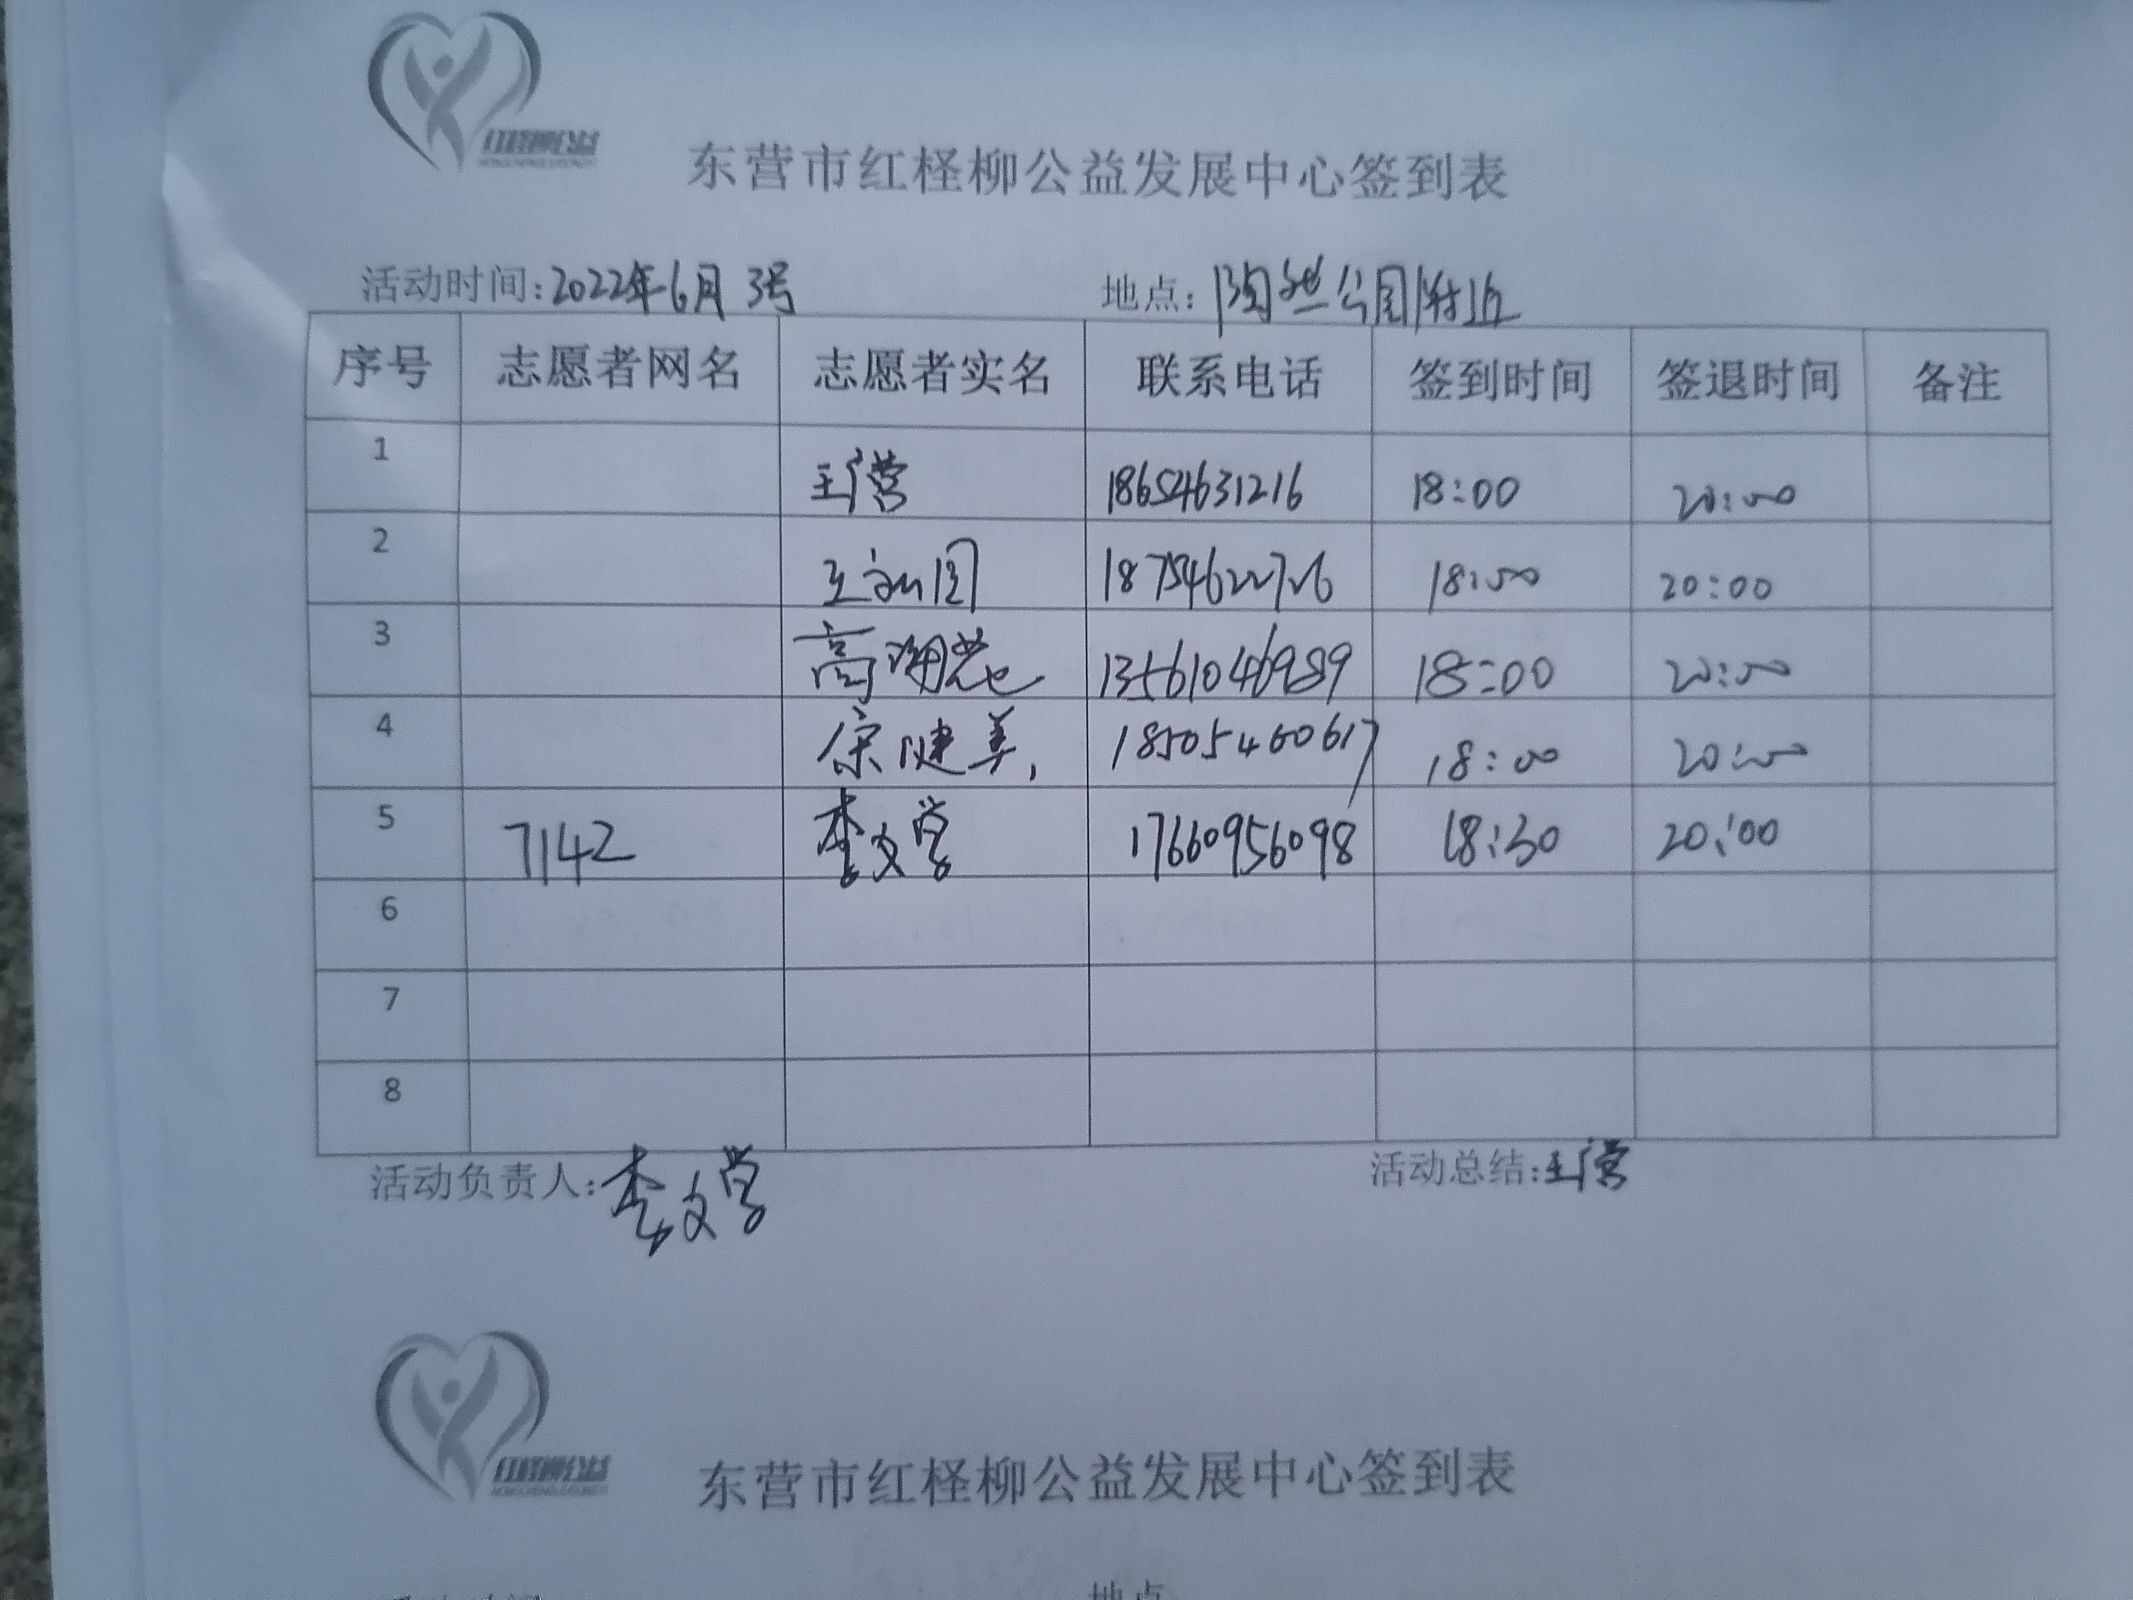 红柽柳公益
东营市红柽柳公益发展中心签到表
活动时间:2022年6月3号 地点:陶然公园附近
序号 志愿者网名 志愿者实名 联系电话 签到时间 签退时间 备注
1 王营 18654631216 18:00 20:00
2 王 18754622726 18:00 20:00
3 高 13561046989 18:00 20:00
4 徐健美 18505460617 18:00 20:00
5 7142 李文学 17660956098 18:30 20:00
6
7
8
活动负责人:李文学 活动总结:王营
红柽柳公益
东营市红柽柳公益发展中心签到表
地点